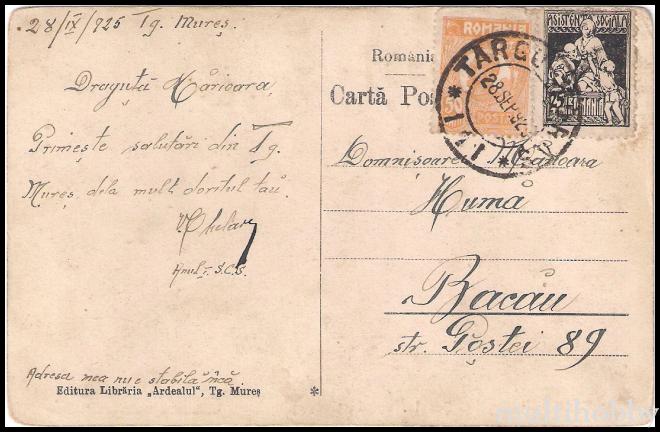 28/IX/925 Tg. Mureș
Dragută Mărioara,
Primește salutări din Tg.
Mureș dela mult doritul tău
Amul I. S.C.S.
Adresa mea nu e stabilă încă
Editura Librăria „Ardealul", Tg. Mureș
*
România
Cartă Poș
ROMANIA
50
POSTA
ASISTENȚA SOCIALA
25
ROMANIA
TARGU
28 SEP. 925
Domnișoarei Mărioara
Huma
Bacău
str. Poștei 89
multihobby